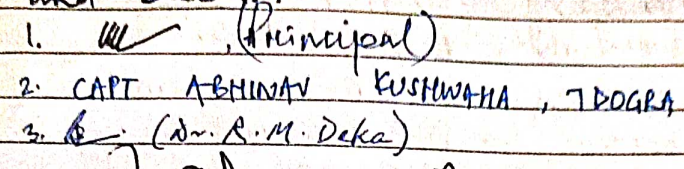 1. , (Principal)
2. CAPT ABHINAV KUSHWAHA, 7 DOGRA
3. (Dr. R. M. Deka)